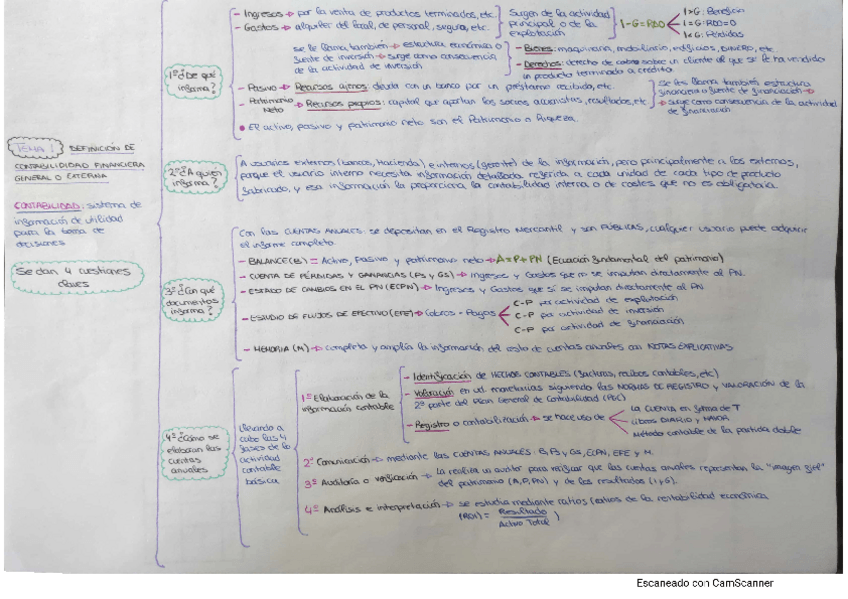 TEMA 1: DEFINICIÓN DE
CONTABILIDAD FINANCIERA
GENERAL O EXTERNA
CONTABILIDAD: sistema de
información de utilidad
para la toma de
decisiones
Se dan 4 cuestiones
claves
1º ¿De qué
informa?
- Ingresos → por la venta de productos terminados, etc.
- Gastos → alquiler del local, de personal, seguro, etc.
Surgen de la actividad
principal o de la
explotación
I-G=RDO
I>G: Beneficio
I=G: RDO=0
I<G: Pérdidas
se le llama también → estructura económica o
fuente de inversión → surge como consecuencia
de la actividad de inversión
- Bienes: maquinaria, mobiliario, edificios, DINERO, etc
- Derechos: derecho de cobro sobre un cliente al que se le ha vendido
un producto terminado a crédito.
- Pasivo → Recursos ajenos: deuda con un banco por un préstamo recibido, etc.
- Patrimonio
Neto → Recursos propios: capital que aportan los socios o accionistas, resultados, etc
Se les llama también estructura
financiera o fuente de financiación →
surge como consecuencia de la actividad
de financiación.
• El activo, pasivo y patrimonio neto son el Patrimonio o Riqueza.
2º ¿A quién
informa?
A usuarios externos (bancos, Hacienda) e internos (gerente) de la información, pero principalmente a los externos,
porque el usuario interno necesita información detallada referida a cada unidad de cada tipo de producto
fabricado, y esa información la proporciona la contabilidad interna o de costes que no es obligatoria.
3º ¿Con qué
documentos
informa?
Con las CUENTAS ANUALES: se depositan en el Registro Mercantil y son PÚBLICAS, cualquier usuario puede adquirir
el informe completo.
- BALANCE (B) = Activo, Pasivo y patrimonio neto → A=P+PN (Ecuación fundamental del patrimonio)
- CUENTA DE PÉRDIDAS Y GANANCIAS (PS y GS) → ingresos y Gastos que no se imputan directamente al PN.
- ESTADO DE CAMBIOS EN EL PN (ECPN) → Ingresos y Gastos que sí se imputan directamente al PN
- ESTUDIO DE FLUJOS DE EFECTIVO (EFE) → Cobros - Pagos
C-P por actividad de explotación
C-P por actividad de inversión
C-P por actividad de financiación
- MEMORIA (M) → completa y amplía la información del resto de cuentas anuales con NOTAS EXPLICATIVAS
4º ¿Cómo se
elaboran las
cuentas
anuales?
llevando a
cabo las 4
fases de la
actividad
contable
básica
1º Elaboración de la
información contable
- Identificación de HECHOS CONTABLES (facturas, recibos contables, etc)
- Valoración en ud. monetarias siguiendo las NORMAS DE REGISTRO y VALORACIÓN de la
2º parte del Plan General de Contabilidad (PGC)
- Registro o contabilización → se hace uso de
LA CUENTA en forma de T
Libros DIARIO y MAYOR
Método contable de la partida doble
2º Comunicación → mediante las CUENTAS ANUALES: B, PS y GS, ECPN, EFE y M.
3º Auditoría o verificación → La realiza un auditor para verificar que las cuentas anuales representan la "imagen fiel"
del patrimonio (A, P, PN) y de los resultados (I+G).
4º Análisis e interpretación → se estudia mediante ratios (ratios de la rentabilidad económica
(ROI) = Resultado
Activo Total )
Escaneado con CamScanner